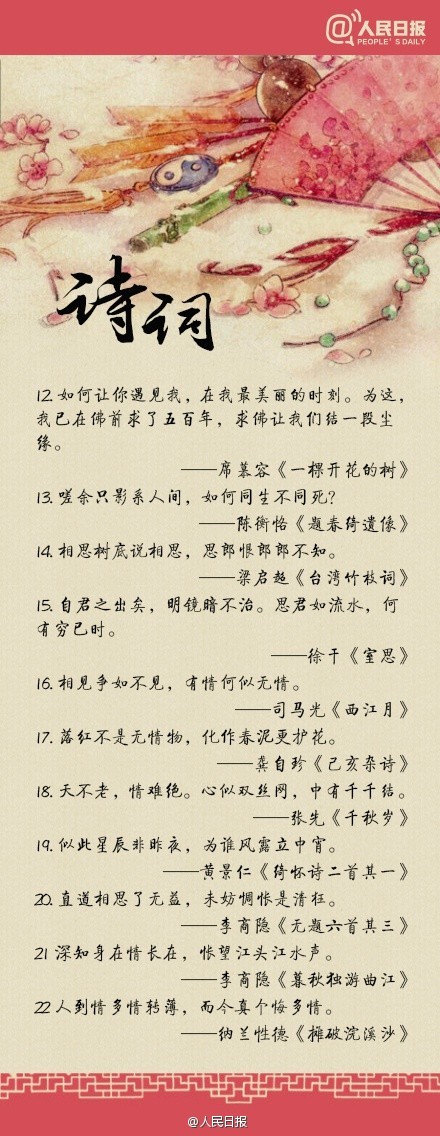 @人民日报
PEOPLE'S DAILY
诗词
12. 如何让你遇见我，在我最美丽的时刻。为这，
我已在佛前求了五百年，求佛让我们结一段尘
缘。
——席慕容《一棵开花的树》
13. 嗟余只影系人间，如何同生不同死？
——陈衡恪《题春绮遗像》
14. 相思树底说相思，思郎恨郎郎不知。
——梁启超《台湾竹枝词》
15. 自君之出矣，明镜暗不治。思君如流水，何
有穷已时。
——徐干《室思》
16. 相见争如不见，有情何似无情。
——司马光《西江月》
17. 落红不是无情物，化作春泥更护花。
——龚自珍《己亥杂诗》
18. 天不老，情难绝。心似双丝网，中有千千结。
——张先《千秋岁》
19. 似此星辰非昨夜，为谁风露立中宵。
——黄景仁《绮怀诗二首其一》
20. 直道相思了无益，未妨惆怅是清狂。
——李商隐《无题六首其三》
21 深知身在情长在，怅望江头江水声。
——李商隐《暮秋独游曲江》
22 人到情多情转薄，而今真个悔多情。
——纳兰性德《摊破浣溪沙》
@人民日报